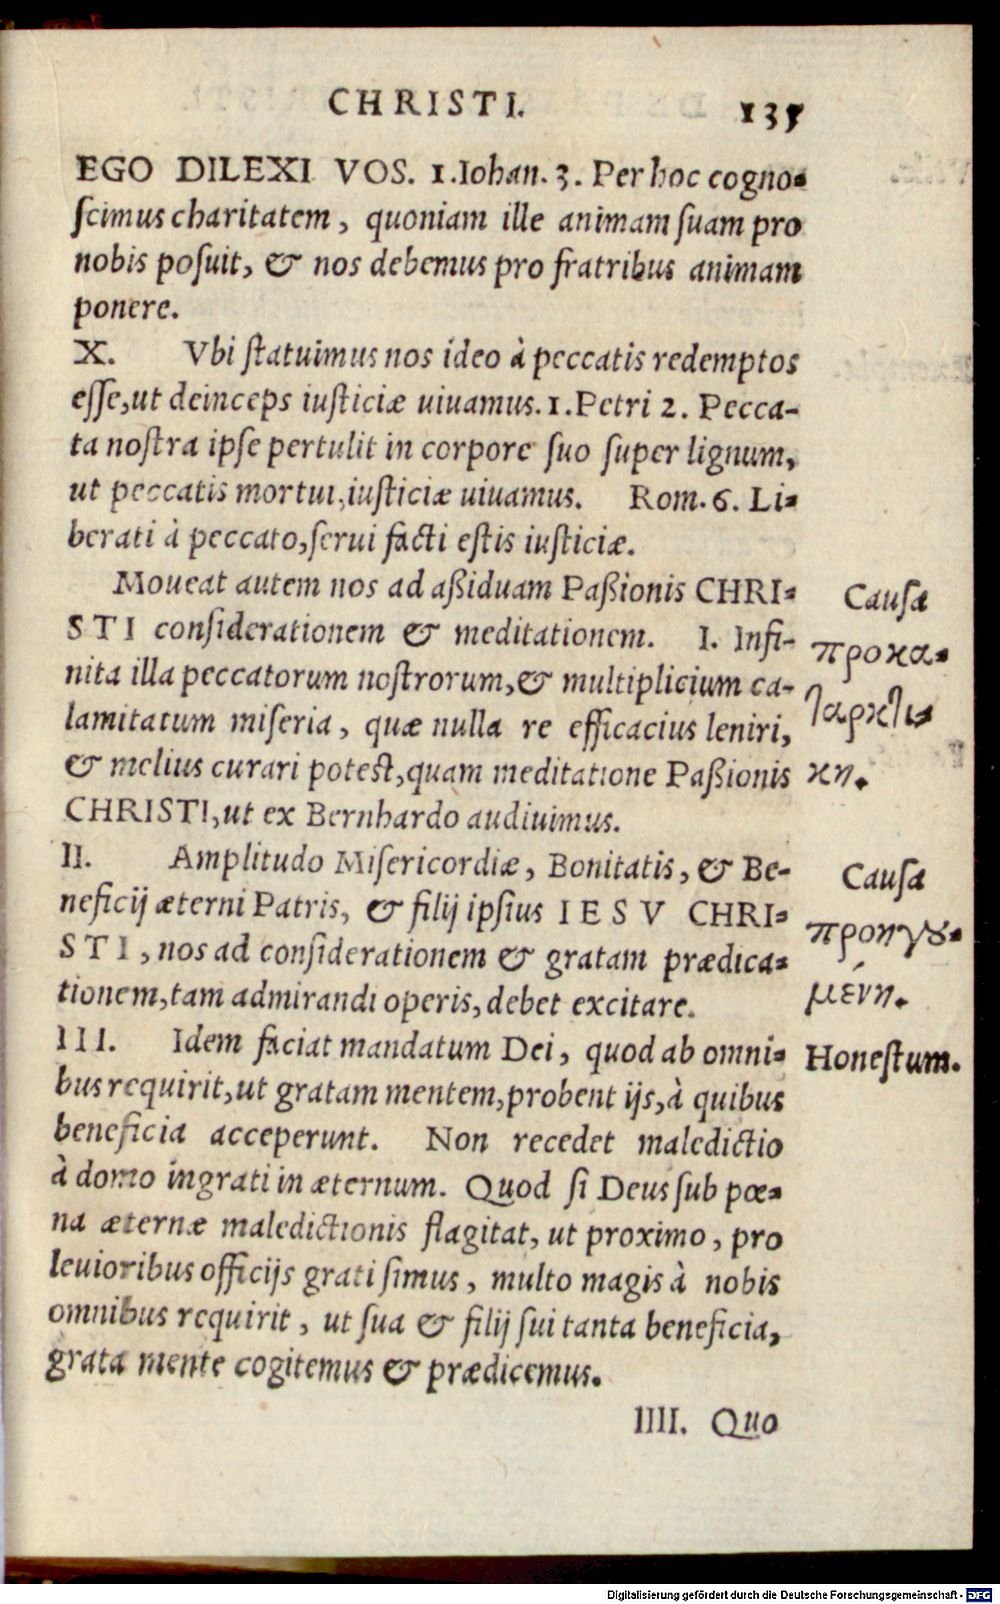 CHRISTI. 135
EGO DILEXI VOS. 1. Iohan. 3. Per hoc cogno-
ſcimus charitatem, quoniam ille animam ſuam pro
nobis poſuit, & nos debemus pro fratribus animam
ponere.
X. Vbi ſtatuimus nos ideo à peccatis redemptos
eſſe, ut deinceps iuſticiæ uiuamus. 1. Petri 2. Pecca-
ta noſtra ipſe pertulit in corpore ſuo ſuper lignum,
ut peccatis mortui, iuſticiæ uiuamus. Rom. 6. Li-
berati à peccato, ſerui facti eſtis iuſticiæ.
Moueat autem nos ad aßiduam Paßionis CHRI-
STI conſiderationem & meditationem. I. Infi-
nita illa peccatorum noſtrorum, & multiplicium ca-
lamitatum miſeria, quæ nulla re efficacius leniri,
& melius curari poteſt, quam meditatione Paßionis
CHRISTI, ut ex Bernhardo audiuimus.
Cauſa
προκα-
ταρκτι-
κη.
II. Amplitudo Miſericordiæ, Bonitatis, & Be-
neficij æterni Patris, & filij ipſius IESV CHRI-
STI, nos ad conſiderationem & gratam prædica-
tionem, tam admirandi operis, debet excitare.
Cauſa
προηγȣ-
μένη.
III. Idem faciat mandatum Dei, quod ab omni-
bus requirit, ut gratam mentem, probent ijs, à quibus
beneficia acceperunt. Non recedet maledictio
à domo ingrati in æternum. Quod ſi Deus ſub pœ-
na æternæ maledictionis flagitat, ut proximo, pro
leuioribus officijs grati ſimus, multo magis à nobis
omnibus requirit, ut ſua & filij ſui tanta beneficia,
grata mente cogitemus & prædicemus.
Honeſtum.
IIII. Quo
Digitalisierung gefördert durch die Deutsche Forschungsgemeinschaft - DFG